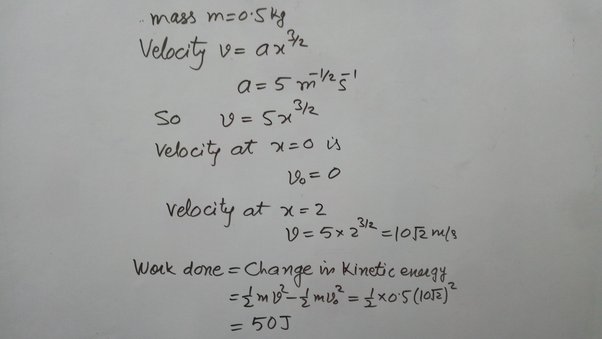 mass m=0.5kg
Velocity v= ax^3/2
a=5 m^-1/2 s^-1
So v= 5x^3/2
Velocity at x=0 is
v₀=0
Velocity at x=2
v= 5×2^3/2 =10√2 m/s
Work done = Change in Kinetic energy
=½mv²-½mv₀²=½×0.5(10√2)²
= 50J